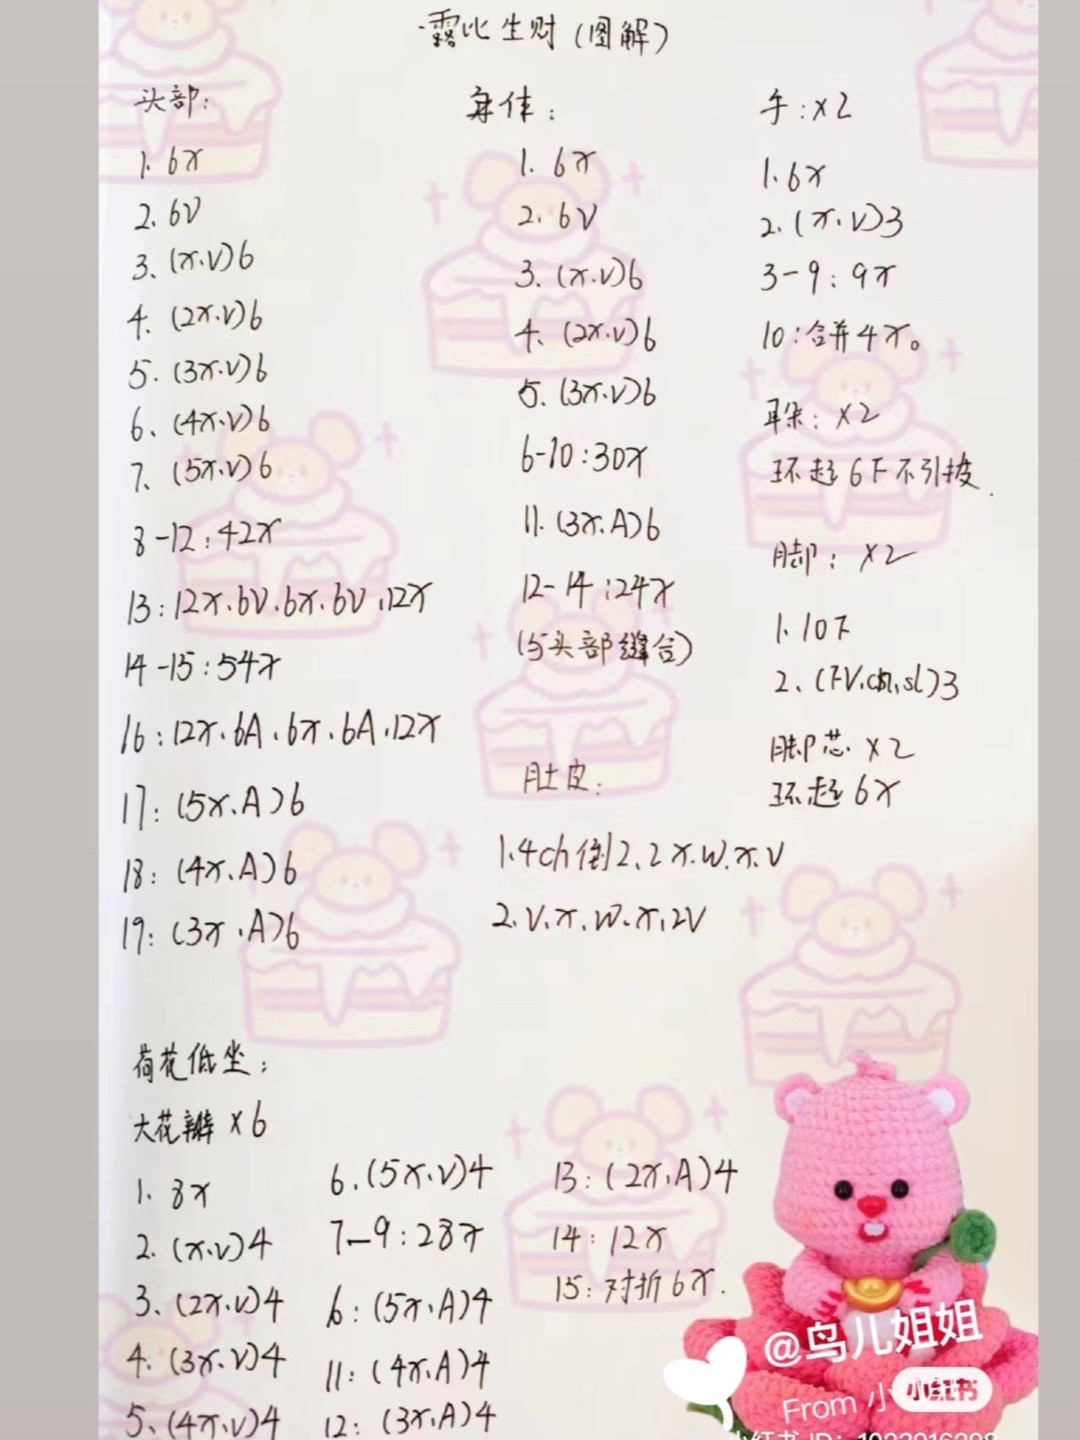 露比生财(图解)
头部:
1. 6x
2. 6V
3. (x.v)6
4. (2x.v)6
5. (3x.v)6
6. (4x.v)6
7. (5x.v)6
8-12:42x
13:12x.6V.6x.6V.12x
14-15:54x
16:12x.6A.6x.6A.12x
17:(5x.A)6
18:(4x.A)6
19:(3x.A)6
身体:
1. 6x
2. 6V
3. (x.v)6
4. (2x.v)6
5. (3x.v)6
6-10:30x
11. (3x.A)6
12-14:24x
(与头部缝合)
肚皮:
1.4ch倒2.2x.W.x.V
2.V.x.W.x.2V
手:x2
1.6x
2.(x.V)3
3-9:9x
10:合并4x。
耳朵:x2
环起6F不引拔.
脚:x2
1.10F
2.(FV.ch.sl)3
脚芯x2
环起6x
荷花低坐:
大花瓣x6
1. 8x
2. (x.v)4
3. (2x.v)4
4. (3x.v)4
5. (4x.v)4
6. (5x.v)4
7-9:28x
6:(5x.A)4
11:(4x.A)4
12:(3x.A)4
13:(2x.A)4
14:12x
15:对折6x.
@鸟儿姐姐
From 小
小红书